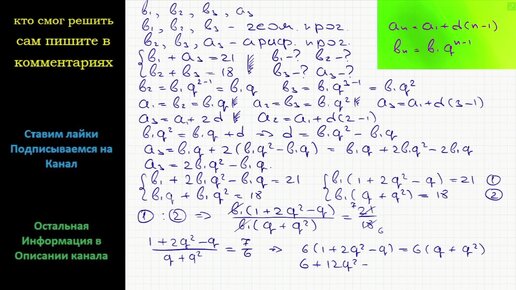 кто смог решить
сам пишите в
комментариях
Ставим лайки
Подписываемся на
Канал
Остальная
Информация в
Описании канала
b₁, b₂, b₃, a₃
b₁, b₂, b₃ - геом. прог.
b₂, b₃, a₃ - ариф. прог.
{b₁ + a₃ = 21 b₁ - ? b₂ - ?
{b₂ + b₃ = 18 b₃ - ? a₃ - ?
b₂ = b₁q²⁻¹ = b₁q b₃ = b₁q³⁻¹ = b₁q²
a₁ = b₂ = b₁q a₂ = b₃ = b₁q² a₃ = a₁ + d(3-1)
a₃ = a₁ + 2d a₂ = a₁ + d(2-1)
b₁q² = b₁q + d ⇒ d = b₁q² - b₁q
a₃ = b₁q + 2(b₁q² - b₁q) = b₁q + 2b₁q² - 2b₁q
a₃ = 2b₁q² - b₁q
{b₁ + 2b₁q² - b₁q = 21 {b₁(1 + 2q² - q) = 21 ①
{b₁q + b₁q² = 18 {b₁(q + q²) = 18 ②
① : ② ⇒ b₁(1 + 2q² - q) / b₁(q + q²) = 21 7 / 18 6
1 + 2q² - q / q + q² = 7/6 ⇒ 6(1 + 2q² - q) = 6(q + q²)
6 + 12q² -
aₙ = a₁ + d(n-1)
bₙ = b₁qⁿ⁻¹